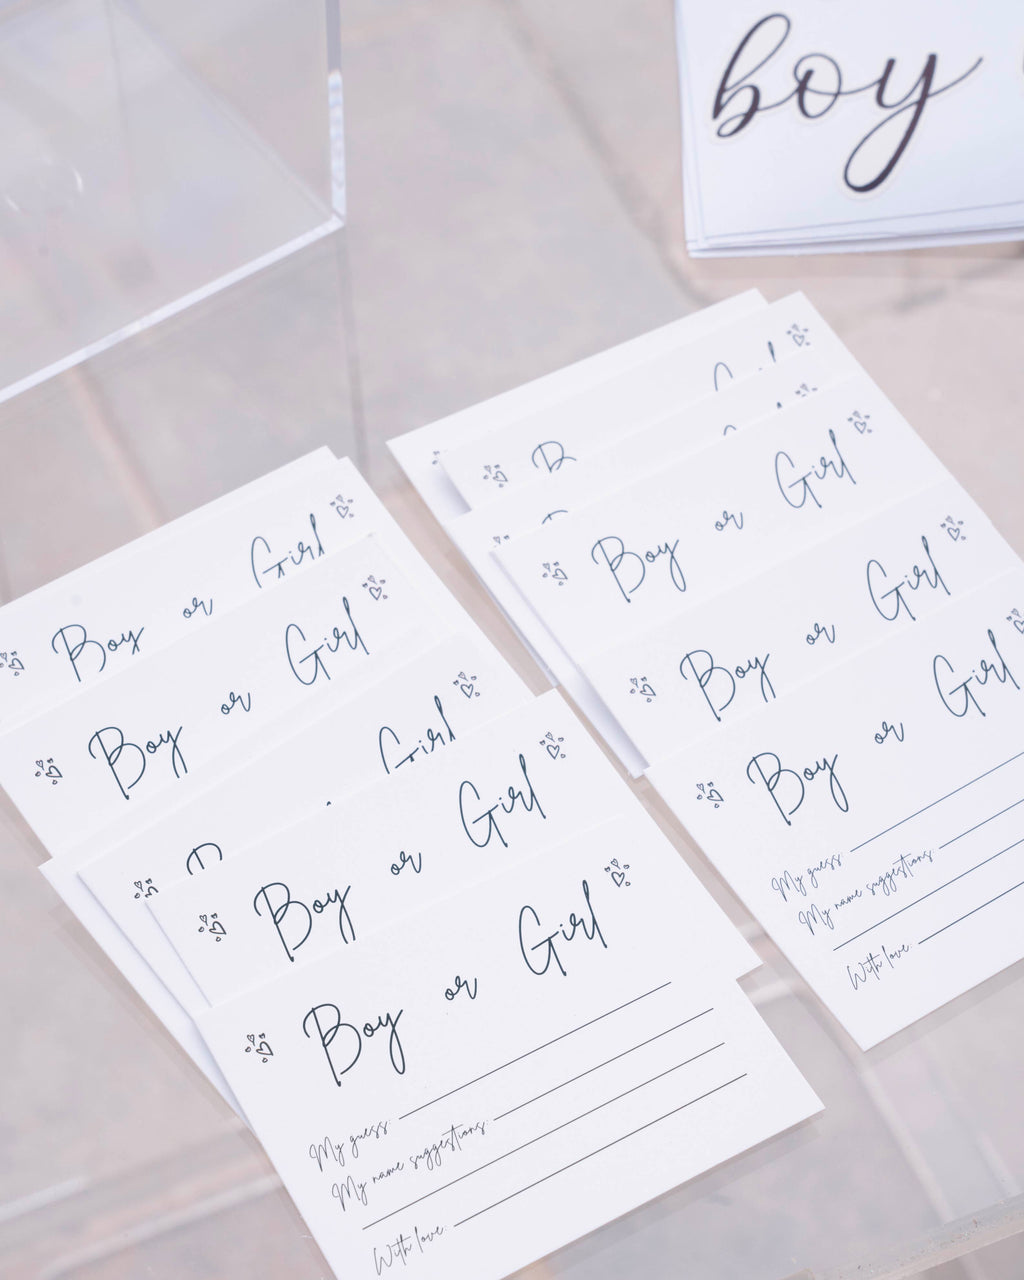 boy
Girl
Boy or Girl
Boy or Girl
Boy or Girl
My guess:
My name suggestions:
With love:
Boy or Girl
Boy or Girl
Girl
Boy or Girl
Boy or Girl
My guess:
My name suggestions:
With love: